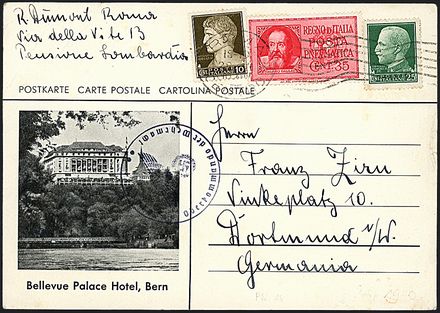 R. Dumont Roma
Via della Vite 13
Pensione Lombardia
10
REGNO D'ITALIA
POSTA
PNEVMATICA
CENT. 35
25
POSTKARTE CARTE POSTALE CARTOLINA POSTALE
Oberkommando der Wehrmacht
Herrn
Franz Zirn
Vinkeplatz 10.
Dortmund i/W.
Germania
Bellevue Palace Hotel, Bern